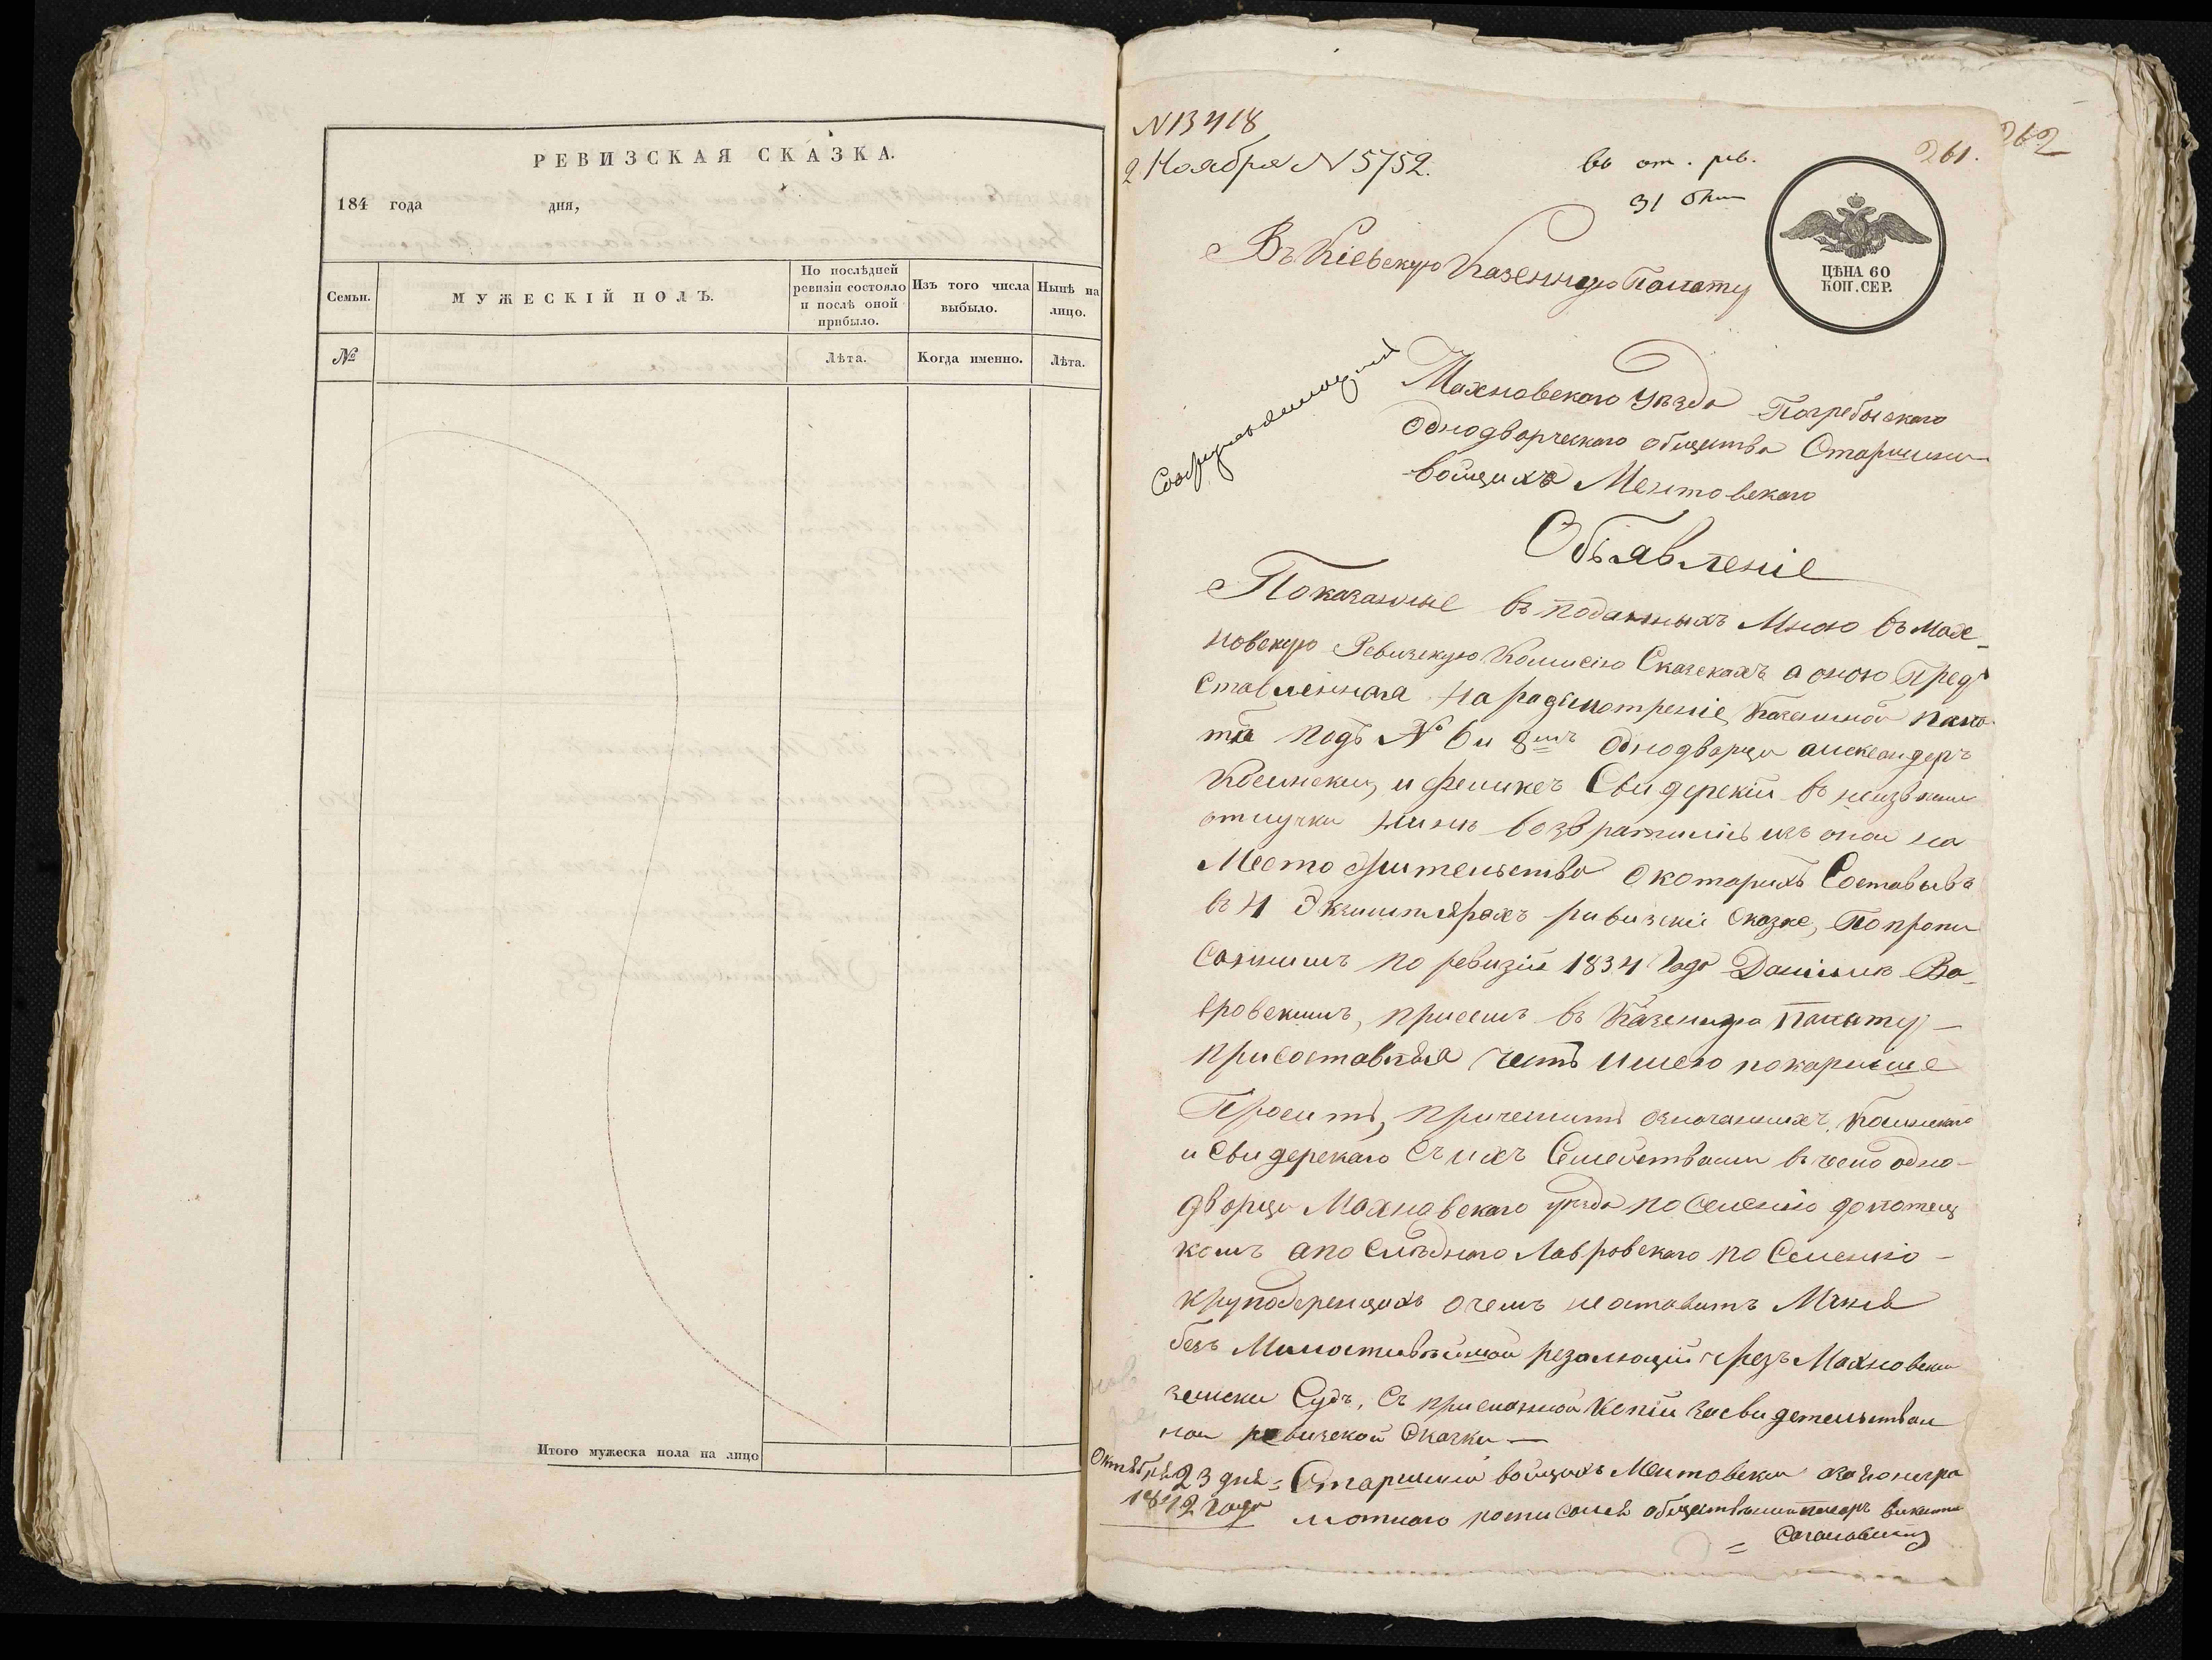 РЕВИЗСКАЯ СКАЗКА.
184 года дня,
Семьи.
МУЖЕСКІЙ ПОЛЪ.
По послѣдней ревизіи состояло и послѣ оной прибыло.
Изъ того числа выбыло.
Нынѣ на лицо.
№
Лѣта.
Когда именно.
Лѣта.
Итого мужеска пола на лицо
N 13418
2 Ноября N 5752.
въ от. рев.
31 Окт
261.
262
ЦѢНА 60
КОП. СЕР.
Въ Кіевскую Казенную Полату
Махновскаго уѣзда Погребыскаго
Однодворческаго общества Старшины
войциха Ментовскаго
Объявленіе
Показанные въ поданныхъ Мною въ Мах
новскую Ревизскую Комисію Сказкахъ а оною Пред
ставленная на разсмотреніе Казенной пала
те подъ № 6 и 8мъ Однодворци александеръ
и феликсъ Свидерскій въ неизвесной
отлучки ныне возвратились изъ оной на
Место жительство о которихъ Составивъ
въ 4 Экземплярахъ ревизскіе сказке, По пропи
саннимъ по ревизій 1834 года Даніиломъ Ва
вровскимъ, присемъ въ Казенную Палату
присоставляя честь имею покорнише
Просить, причислить означеннихъ Косинскаго
и Свидерскаго съ ихъ Семействами въ число одно
дворци Махновскаго уезда по Селенію
комъ а последнаго Лавровскаго по Селенію
о чемъ не оставить Меня
безъ Милостивейшой резолюціи чрезъ Махновски
земски Судъ, съ присланной копіи засвидетельствован
ной ревизской Сказки
Октября 23 дня Старшина войцихъ Ментовски а за него негра
1842 года мотнаго росписался общественни писаръ